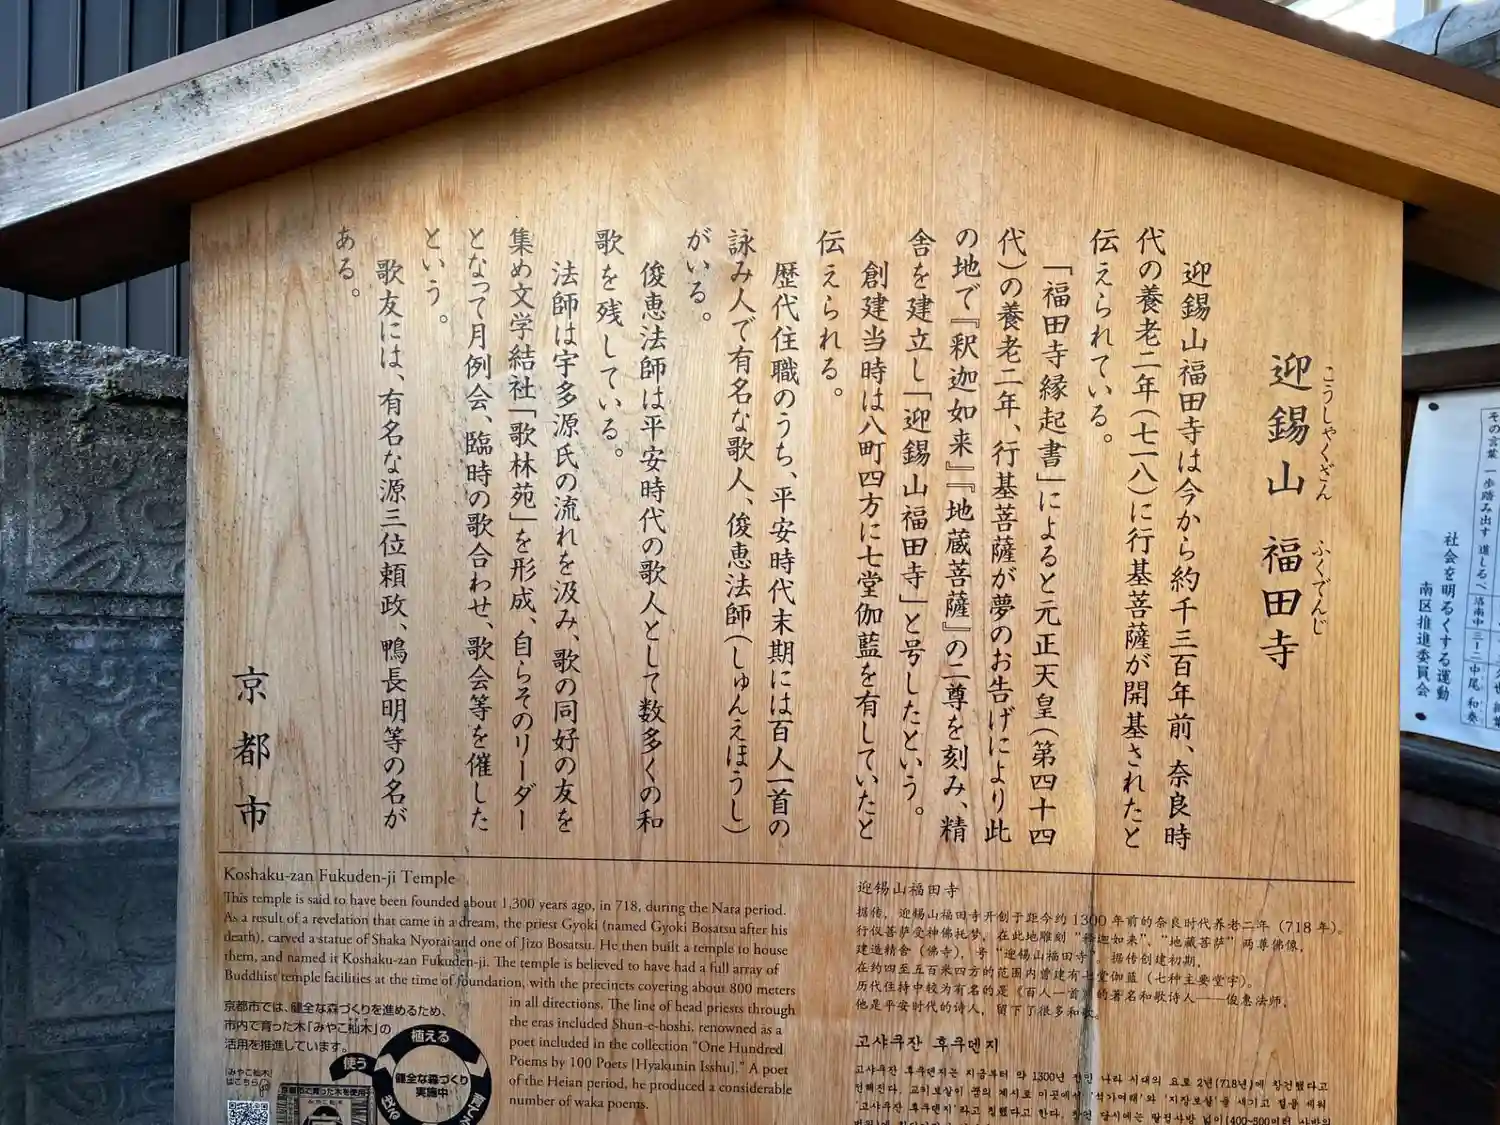 迎錫山 福田寺
こうしゃくざん ふくでんじ
迎錫山福田寺は今から約千三百年前、奈良時
代の養老二年(七一八)に行基菩薩が開基されたと
伝えられている。
「福田寺縁起書」によると元正天皇(第四十四
代)の養老二年、行基菩薩が夢のお告げにより此
の地で『釈迦如来』『地蔵菩薩』の二尊を刻み、精
舎を建立し「迎錫山福田寺」と号したという。
創建当時は八町四方に七堂伽藍を有していたと
伝えられる。
歴代住職のうち、平安時代末期には百人一首の
詠み人で有名な歌人、俊恵法師(しゅんえほうし)
がいる。
俊恵法師は平安時代の歌人として数多くの和
歌を残している。
法師は宇多源氏の流れを汲み、歌の同好の友を
集め文学結社「歌林苑」を形成、自らそのリーダー
となって月例会、臨時の歌合わせ、歌会等を催した
という。
歌友には、有名な源三位頼政、鴨長明等の名が
ある。
京都市
Koshaku-zan Fukuden-ji Temple
This temple is said to have been founded about 1,300 years ago, in 718, during the Nara period.
As a result of a revelation that came in a dream, the priest Gyoki (named Gyoki Bosatsu after his
death), carved a statue of Shaka Nyorai and one of Jizo Bosatsu. He then built a temple to house
them, and named it Koshaku-zan Fukuden-ji. The temple is believed to have had a full array of
Buddhist temple facilities at the time of foundation, with the precincts covering about 800 meters
in all directions. The line of head priests through
the eras included Shun-e-hoshi, renowned as a
poet included in the collection "One Hundred
Poems by 100 Poets [Hyakunin Isshu]." A poet
of the Heian period, he produced a considerable
number of waka poems.
京都市では、健全な森づくりを進めるため、
市内で育った木「みやこ杣木」の
活用を推進しています。
みやこ杣木
はこちら
植える
使う
健全な森づくり
実施中
京都市で育った木を使用
みやこ杣木
迎锡山福田寺
据传，迎锡山福田寺开创于距今约1300年前的奈良时代养老二年（718年）。
行仪菩萨受神佛托梦，在此地雕刻"释迦如来"，"地藏菩萨"两尊佛像，
建造精舍（佛寺），号"迎锡山福田寺"。据传创建初期，
在约四至五百米四方的范围内曾建有七堂伽蓝（七种主要堂宇）。
历代住持中较为有名的是《百人一首》的著名和歌诗人——俊惠法师，
他是平安时代的诗人，留下了很多和歌。
고샤쿠잔 후쿠덴지
고샤쿠잔 후쿠덴지는 지금부터 약 1300년 전인 나라 시대의 요로 2년(718년)에 창건됐다고
その言葉 一歩踏み出す 道しるべ
洛南中 三-二 中尾 和奏
社会を明るくする運動
南区推進委員会